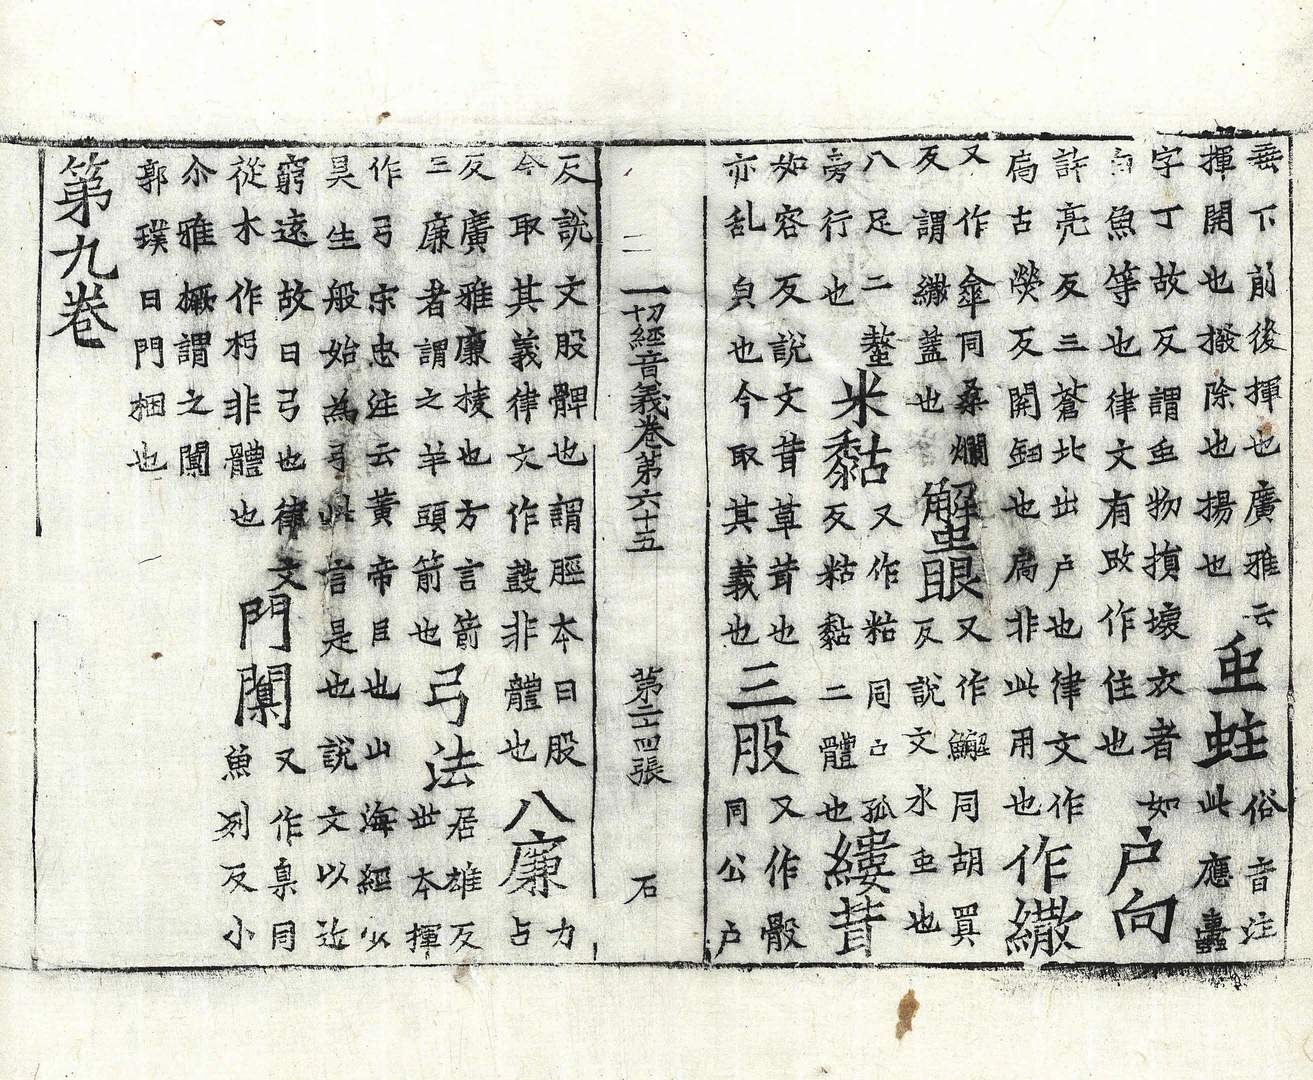 垂下前後揮也廣雅云
揮開也撥除也揚也
虫蛀
俗音注
此應蠹
字丁故反謂虫物損壞衣者如
白魚等也律文有改作住也
户向
許亮反三蒼北出户也律文作
扃古熒反開鈕也扃非此用也
作繖
又作傘同桑爛
反謂繖蓋也
蟹眼
又作鱰同胡買
反說文水虫也
八足二螯
旁行也
米黏
又作粘同孤
反粘黏二體也
縷茸
如容反說文茸草茸也
亦乱皃也今取其義也
三股
又作骰
同公户
二 一切經音義卷第六十五 第二十四張 石
反說文股髀也謂脛本曰股
今取其義律文作鼓非體也
八廉
力
占
反廣雅廉棱也方言箭
三廉者謂之羊頭箭也
弓法
居雄反
世本揮
作弓宋忠注云黄帝臣也山海經少
昊生般始為弓此言是也說文以近
窮遠故曰弓也律文
從木作杇非體也
門闑
又作臬同
魚列反小
尒雅橛謂之闑
郭璞曰門梱也
第九卷